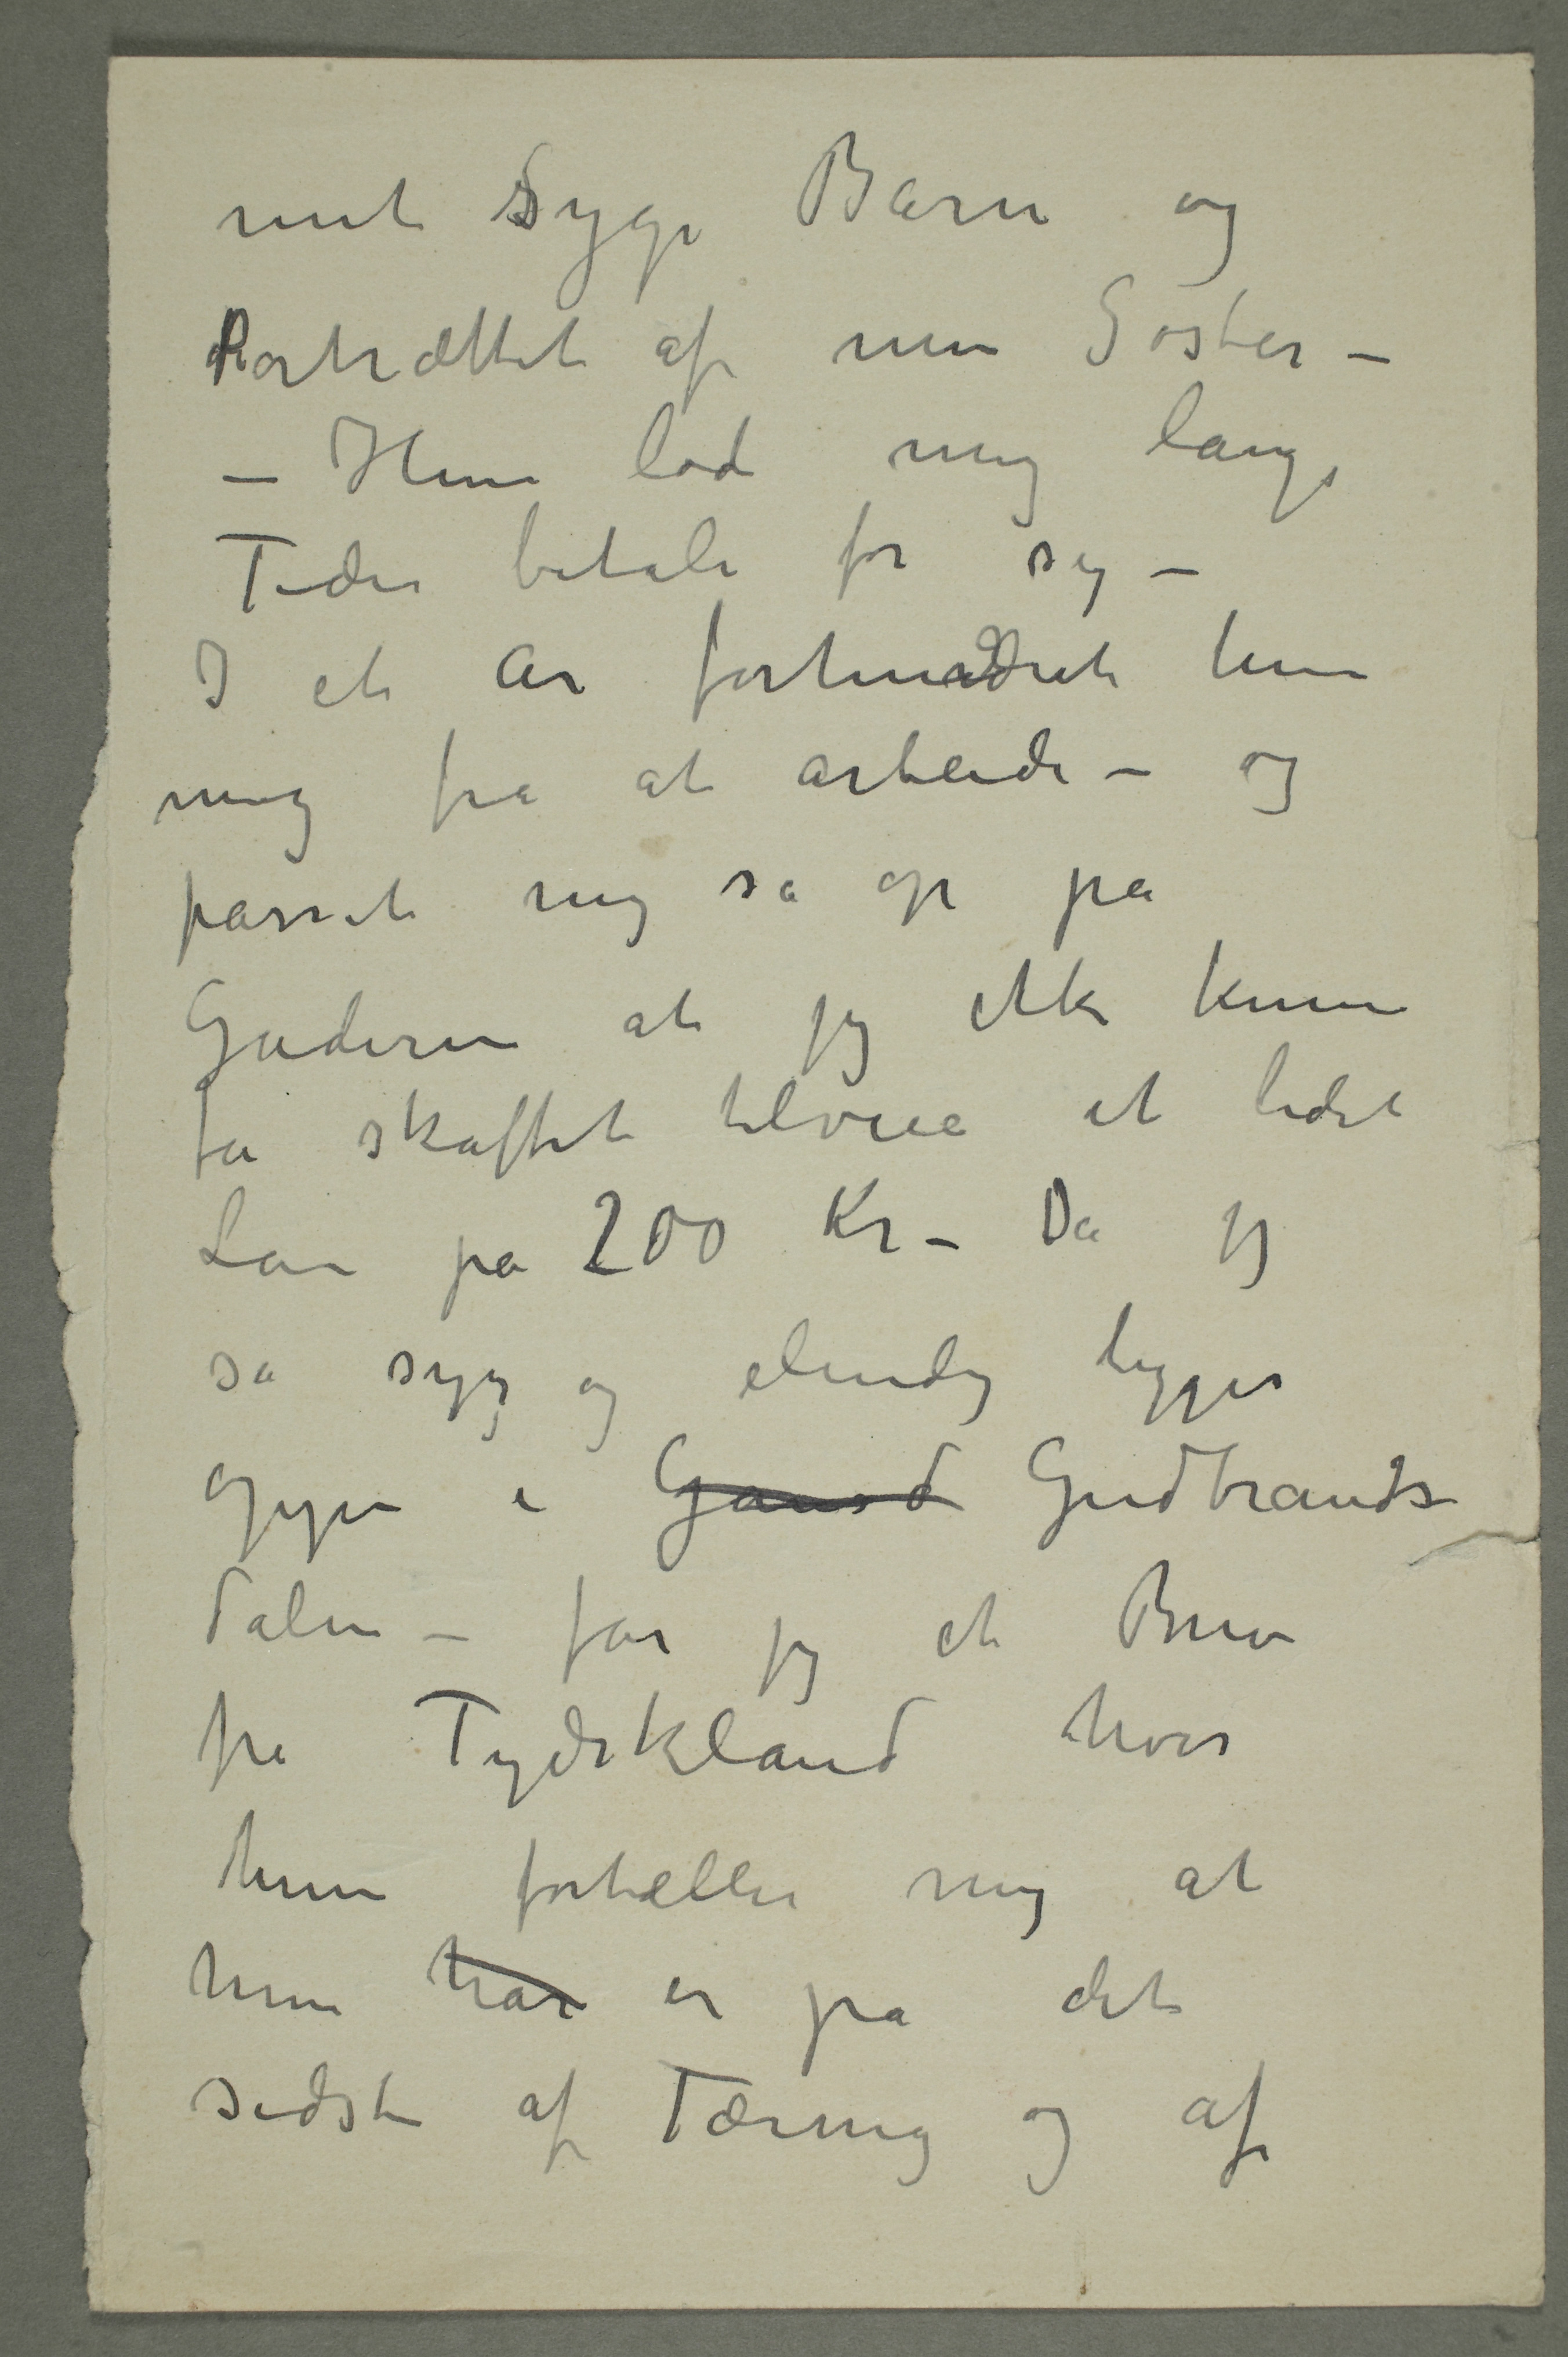 mit Syge Barn og
Portrættet af min Søster –
– Hun lod mig lange
Tider betale for sig –
I et Ar forhindret hun
mig fra at arbeide – og
passet mig sa op pa
Gaderne at jeg ikke kunne
fa skaffet tilveie et lidet
Lan pa 200 Kr – Da jeg
sa syg og elendig ligger
oppe i Gausd Gudbrands-
dalen – far jeg et Brev
fra Tydskland hvor
hun fortæller mig at
hun har er pa det
sidste af Tæring og af